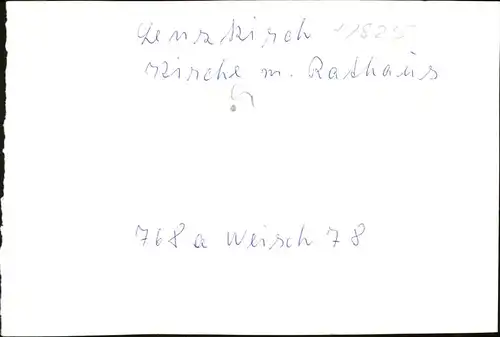 Lenzkirch 11825
Kirche m. Rathaus
768 a Weisch 78